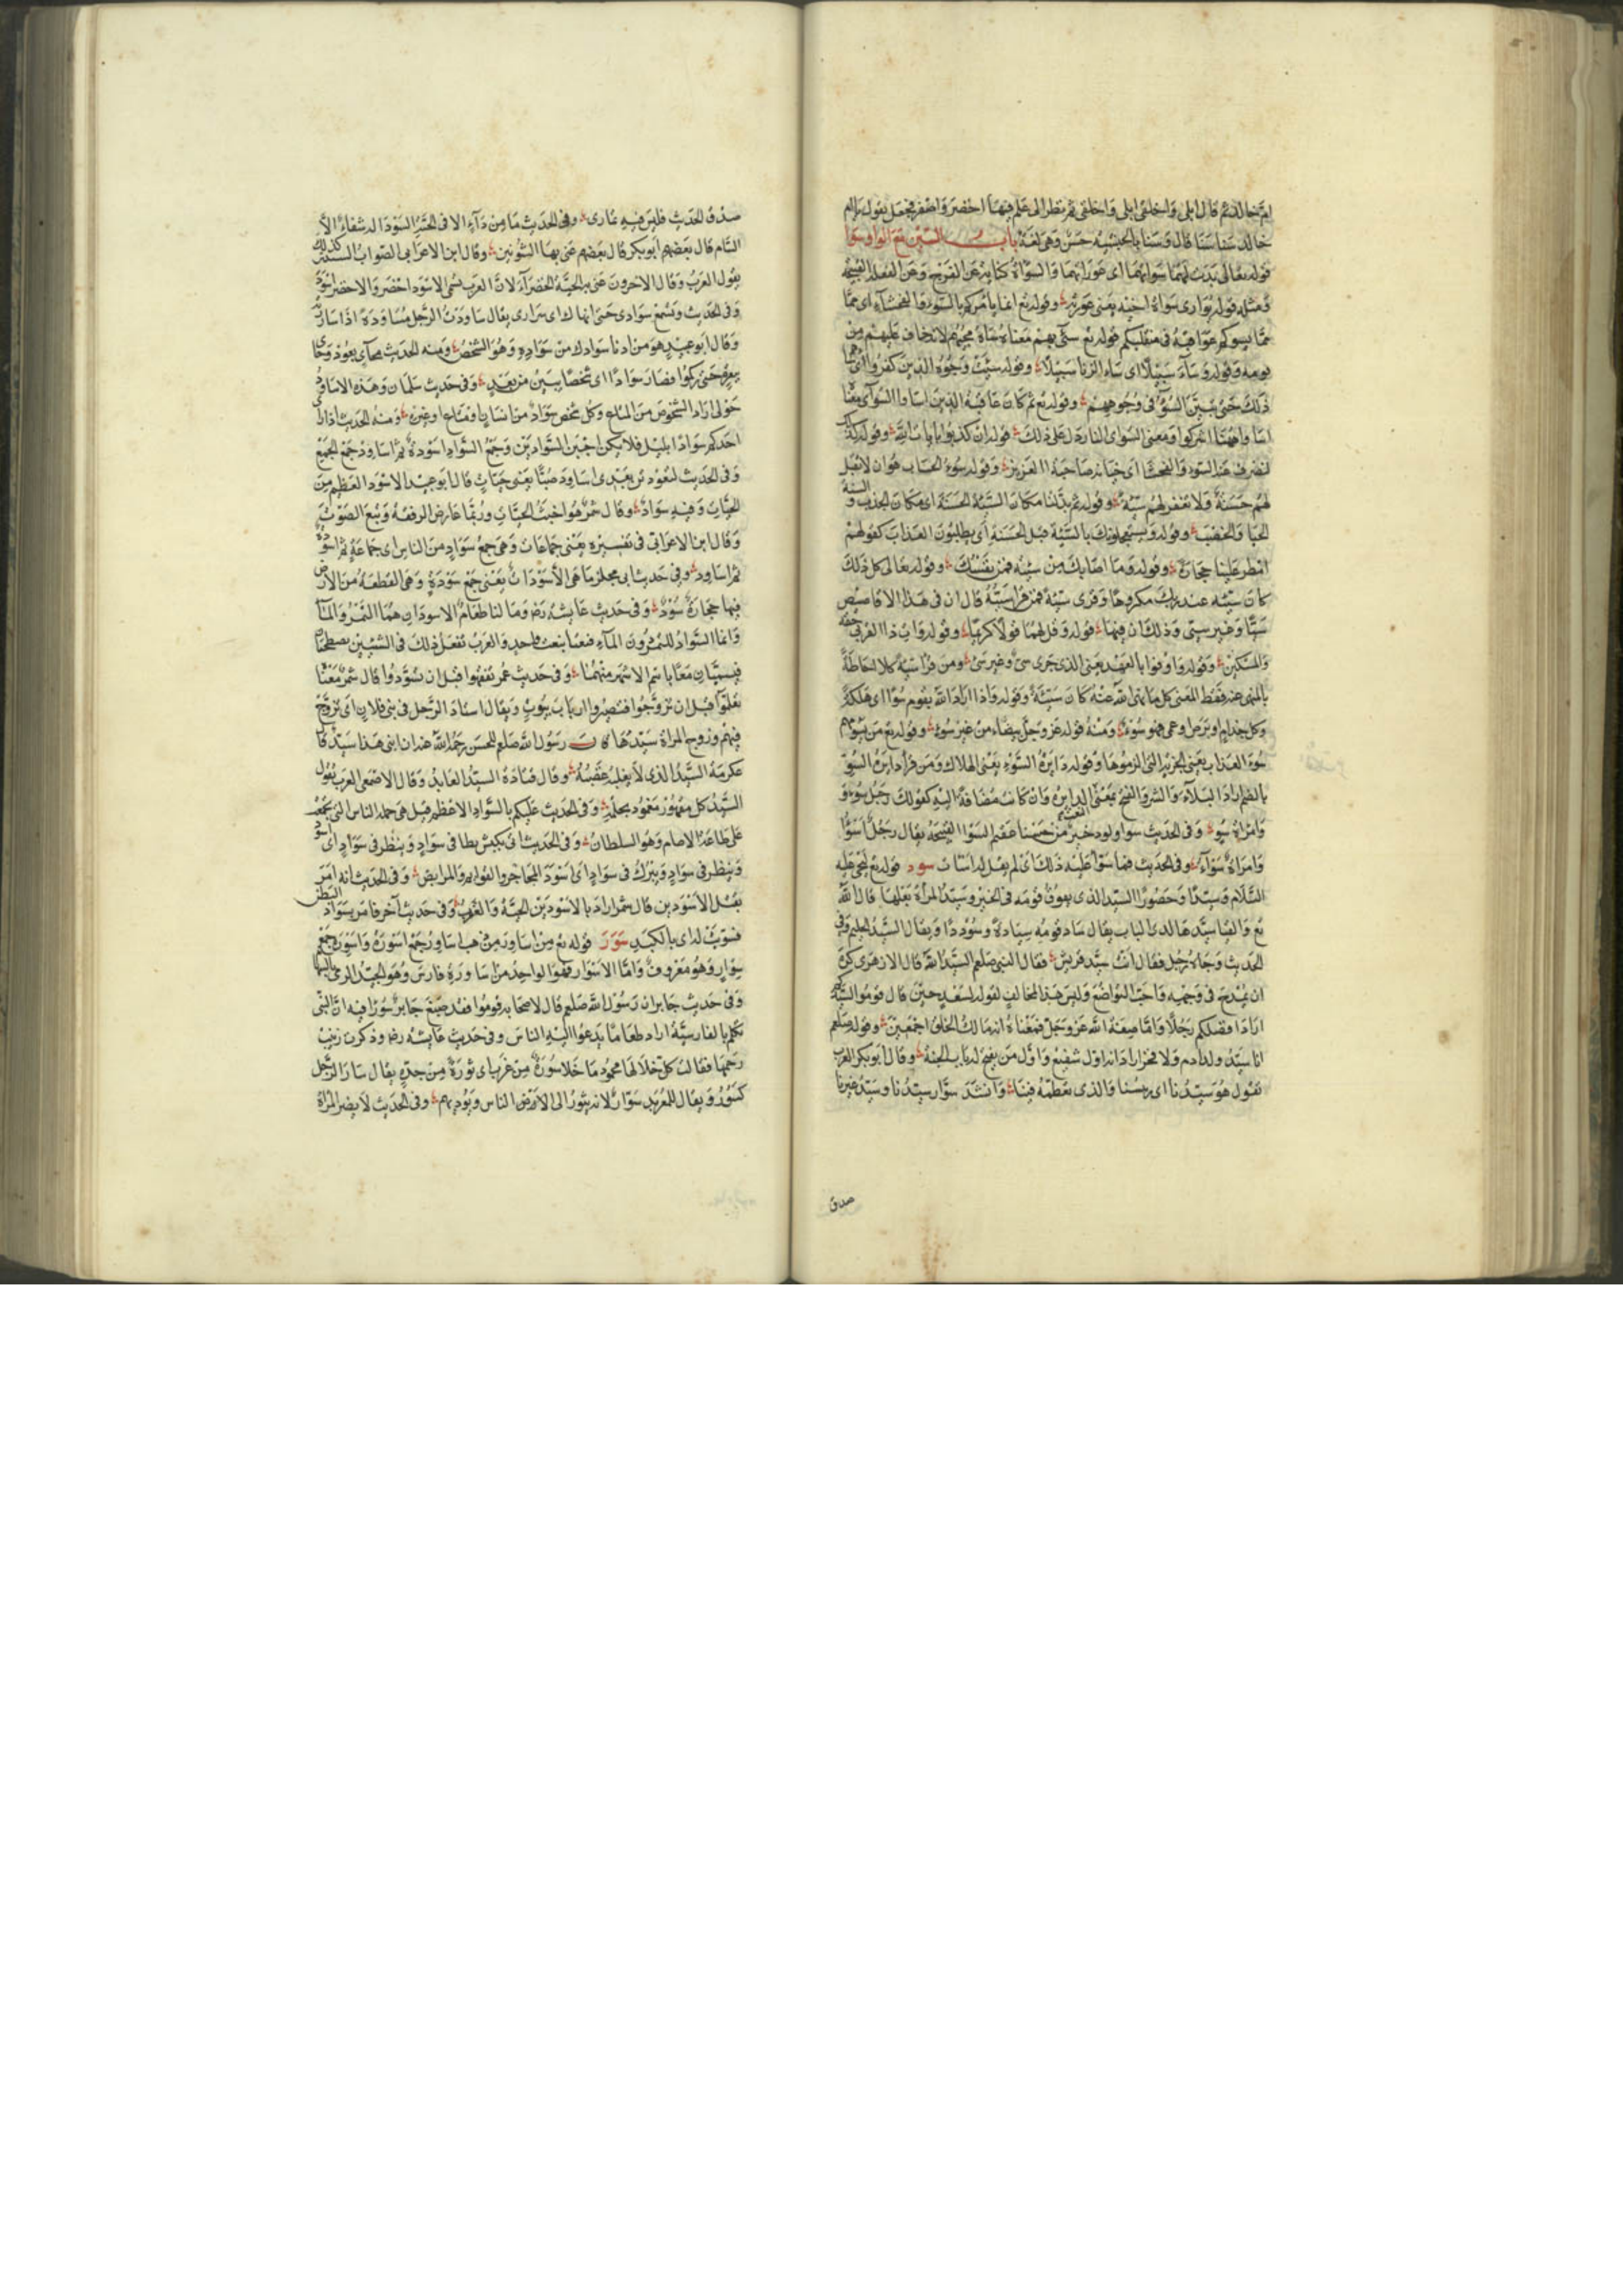 ام خالد ثم قال ابلى واخلقى ابلى واخلقى ثم نظر الى علم فيها اخضر واصفر فجعل يقول يا ام
خالد سنا سنا قال وسنا بالحبشية حسن وهى لغة باب السين مع الواو سوا
قوله تعالى بدت لهما سواتهما اى عوراتهما والسوأة كناية عن الفرج وعن الفعلة القبيحة
ومثله قوله يوارى سوأة اخيه يعنى عورته وقوله تع انما يامركم بالسوء والفحشاء اى مما
يسوكم عواقبه فى منقلبكم قوله تع سئ بهم معناه ساءه مجيئهم لانه خاف عليهم من
قومه وقوله وساء سبيلا اى ساء الزنا سبيلا وقوله سيئت وجوه الذين كفروا
ذلك حتى تبين السوء فى وجوههم وقوله تع ثم كان عاقبة الذين اساوا السوأى
ومعنى السواى النار دل على ذلك قوله ان كذبوا بايات الله وقوله
لنصرف عنه السوء والفحشا اى خيانة صاحبه العزيز وقوله سوء الحساب هو ان لا تقبل
لهم حسنة ولا تغفر لهم سيئة وقوله ثم بدلنا مكان السيئة الحسنة اى مكان الجدب والسنة
الحيا والخصب وقوله ويستعجلونك بالسيئة قبل الحسنة اى يطلبون العذاب كقولهم
امطر علينا حجارة وقوله وما اصابك من سيئة فمن نفسك وقوله تعالى كل ذلك
كان سيئه عند ربك مكروها وقرى سيئة فمن قرا سيئة قال ان فى هذا الاقاصيص
سيئا وغير سيئى وذلك ان فيها قوله وقل لهما قولا كريما وقوله وات ذا القربى حقه
والمسكين وقوله واوفوا بالعهد يعنى الذى جرى سئ وغير سئ ومن قرا سيئة كلا احاطة
بالمنهى عنه فقط المعنى كل ما نهى الله عنه كان سيئة وقوله واذا اراد الله بقوم سؤا اى هلكة
وكل جذام وبرص وعمى فهو سوء ومنه قوله عز وجل بيضاء من غير سوء وقوله تع من يسومهم
سوء العذاب يعنى الجزية التى الزموها وقوله دايرة السوء يعنى الهلاك ومن قرا دايرة السوء
بالضم اراد البلاء والشر والفتح بمعنى الدايرة وان كانت مضافة اليه كقولك رجل سوء
وامراة سوء وفى الحديث سوا ولود خير من حسنا عقيم السوا القبيحة يقال رجل اسوأ
وامراة سوآء وفى الحديث فما سوأ عليه ذلك اى لم يقل له اسات سود قوله تع يحيى عليه
السلام وسيدا وحصورا السيد الذى يفوق قومه فى الخير وسيد المراة بعلها قال الله
تع والفيا سيدها لدى الباب يقال ساد قومه سيادة وسوددا ويقال السيد الحليم وفى
الحديث وجاه رجل فقال انت سيد قريش فقال النبى صلعم السيد الله قال الازهرى كره
ان يمدح فى وجهه واحب التواضع وليس هذا بمخالف لقوله لسعد حين قال قوموا لسيدكم
اراد افضلكم رجلا واما صفة الله عز وجل فمعناه انه مالك الخلق اجمعين وقوله صلعم
انا سيد ولد ادم ولا فخر اراد انه اول شفيع واول من يفتح له باب الجنة وقال ابو بكر العرب
تقول هو سيدنا اى رئيسنا والذى نعظمه فينا وانشد سوار سيدنا وسيد غيرنا
صدق
صدق الحديث فليس فيه تمارى وفى الحديث ما من دآء الا فى الحبة السودا له شفاء الا
السام قال بعضهم ابو بكر قال بعضهم عنى بها الشونيز وقال ابن الاعرابى الصواب الشينيز كذلك
يقول العرب وقال الاخرون عنى به الحبة الخضرآء لان العرب تسمى الاسود اخضر والاخضر اسود
وفى الحديث وتسمع سوادى حتى انهاك اى سرارى يقال ساودت الرجل مساودة اذا ساررته
وقال ابو عبيد هو من ادنا سوادك من سواده وهو الشخص ومنه الحديث فجآء بعود
ببعرة حتى ركموا فصار سوادا اى شخصا يبين من بعد وفى حديث سلمان وهذه الاساود
حولى اراد الشخوص من المتاع وكل شخص سواد من انسان او متاع او غيره ومنه الحديث اذا راى
احدكم سوادا بليل فلا يكن اجبن السوادين وجمع السواد اسودة ثم اساود جمع الجمع
وفى الحديث لتعودن بعدى اساود صبا يعنى حيات قال ابو عبيد الاسود العظيم من
الحيات وفيه سواد وقال شمر هو اخبث الحيات وربما عارض الرفقة وتبع الصوت
وقال ابن الاعرابى فى تفسيره يعنى جماعات وهى جمع سواد من الناس اى جماعة ثم اسودة
ثم اساود وفى حديث ابى مجلز ما هى الاسودات يعنى جمع سودة وهى القطعة من الارض
فيها حجارة سود وفى حديث عايشة رض وما لنا طعام الا سودان هما التمر والمآ
وانما السواد للتمر دون المآء فنعتا بنعت واحد والعرب تفعل ذلك فى الشيئين يصطحبان
فيسميان معا باسم الاشهر منهما وفى حديث عمر تفقهوا قبل ان تسودوا قال شمر معنا
تعلموا قبل ان تزوجوا فتصيروا ارباب بيوت ويقال استاد الرجل فى بنى فلان اى تزوج
فيهم وزوج المراة سيدها كان رسول الله صلعم للحسن رحمه الله هذا ان ابنى هذا سيد قال
عكرمة السيد الذى لا يغلبه غضبه وقال قتادة السيد العابد وقال الاصمعى العرب تقول
السيد كل مقهور مغمود بحلمه وفى الحديث عليكم بالسواد الاعظم قيل هى جملة الناس التى تجمعت
على طاعة الامام وهو السلطان وفى الحديث اتى بكبش يطا فى سواد وينظر فى سواد اى اسود
وينظر فى سواد ويبرك فى سواد اى اسود المحاجر والقوايم والمرابض وفى الحديث انه امر
بقتل الاسودين قال شمر اراد بالاسودين الحية والعقرب وفى حديث آخر فامر بسواد البطن
فشوى له اى بالكبد سور قوله تع من اساور من ذهب اساور جمع اسورة واسورة جمع
سوار وهو معروف واما الاسوار فهو الواحد من اساورة فارس وهو الجيد الرمى بالسهام
وفى حديث جابر ان رسول الله صلعم قال لاصحابه قوموا فقد صنع جابر سورا فيه ان النبى
تكلم بالفارسية اراد طعاما يدعوا اليه الناس وفى حديث عايشة رض وذكرت زينب
رحمها فقالت كل خلالها محمود ما خلا سورة من غرب اى ثورة من حدة يقال سار الرجل
يسور ويقال للمعربد سوار لانه يثور الى الارض الناس ويوذيهم وفى الحديث لا يضر المراة